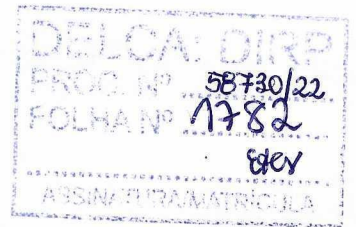 DELCA: DIRP
PROC. Nº 58730/22
FOLHA Nº 1782
ASSINATURA/MATRÍCULA